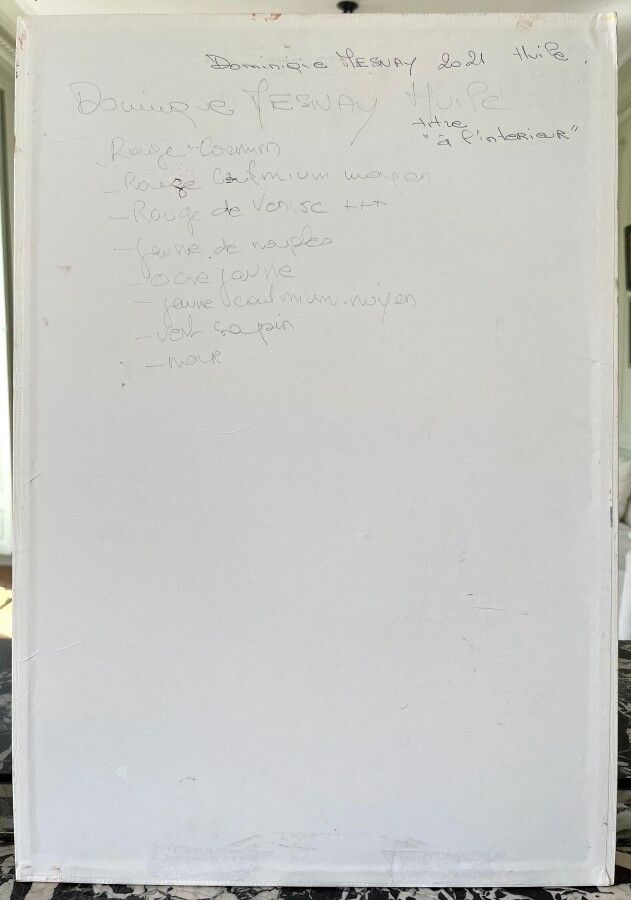 Dominique MESNAY 2021 Huile.
Dominique MESNAY Huile
titre
"à l'intérieur"
Rouge-Carmin
- Rouge Cadmium moyen
- Rouge de Venise +++
- jaune de naples
- ocre jaune
- jaune cadmium moyen
- vert sapin
- noir